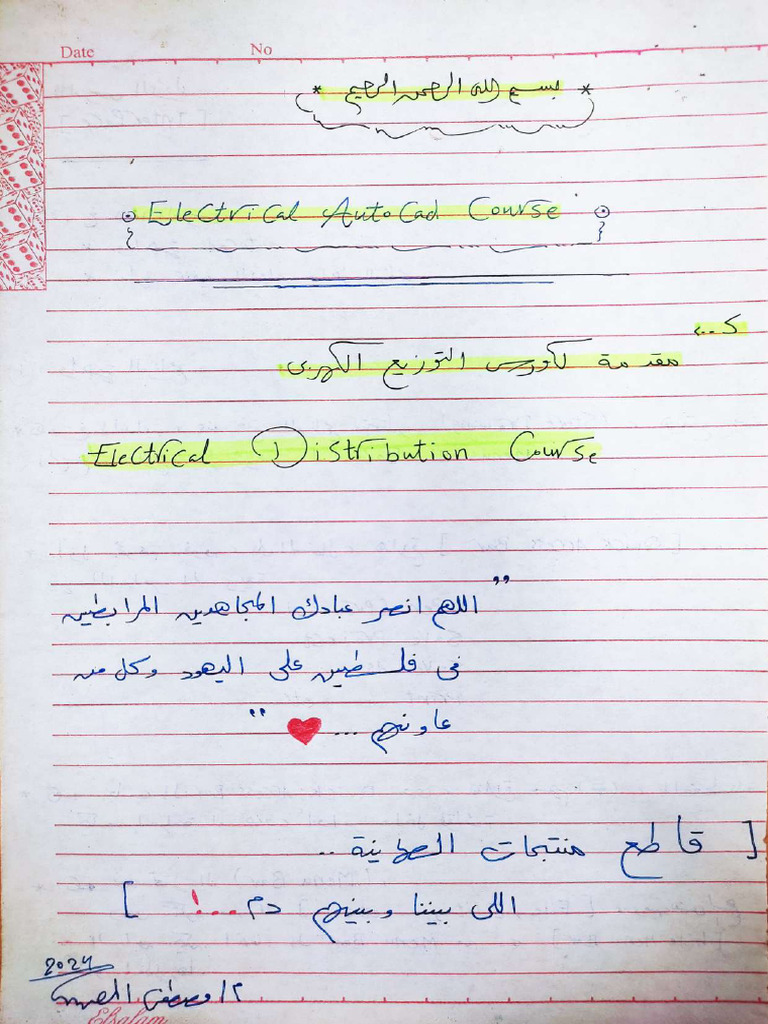 Date No
* بسم الله الرحمن الرحيم *
Electrical AutoCad Course
مقدمة لكورس التوزيع الكهربى
Electrical Distribution Course
" اللهم انصر عبادك المجاهدين المرابطين
فى فلسطين على اليهود وكل من
عاونهم ... ❤ "
[ قاطع منتجات الصهاينة ..
اللى بيننا وبينهم دم ...! ]
2024
م/ مصطفى
Elsalam